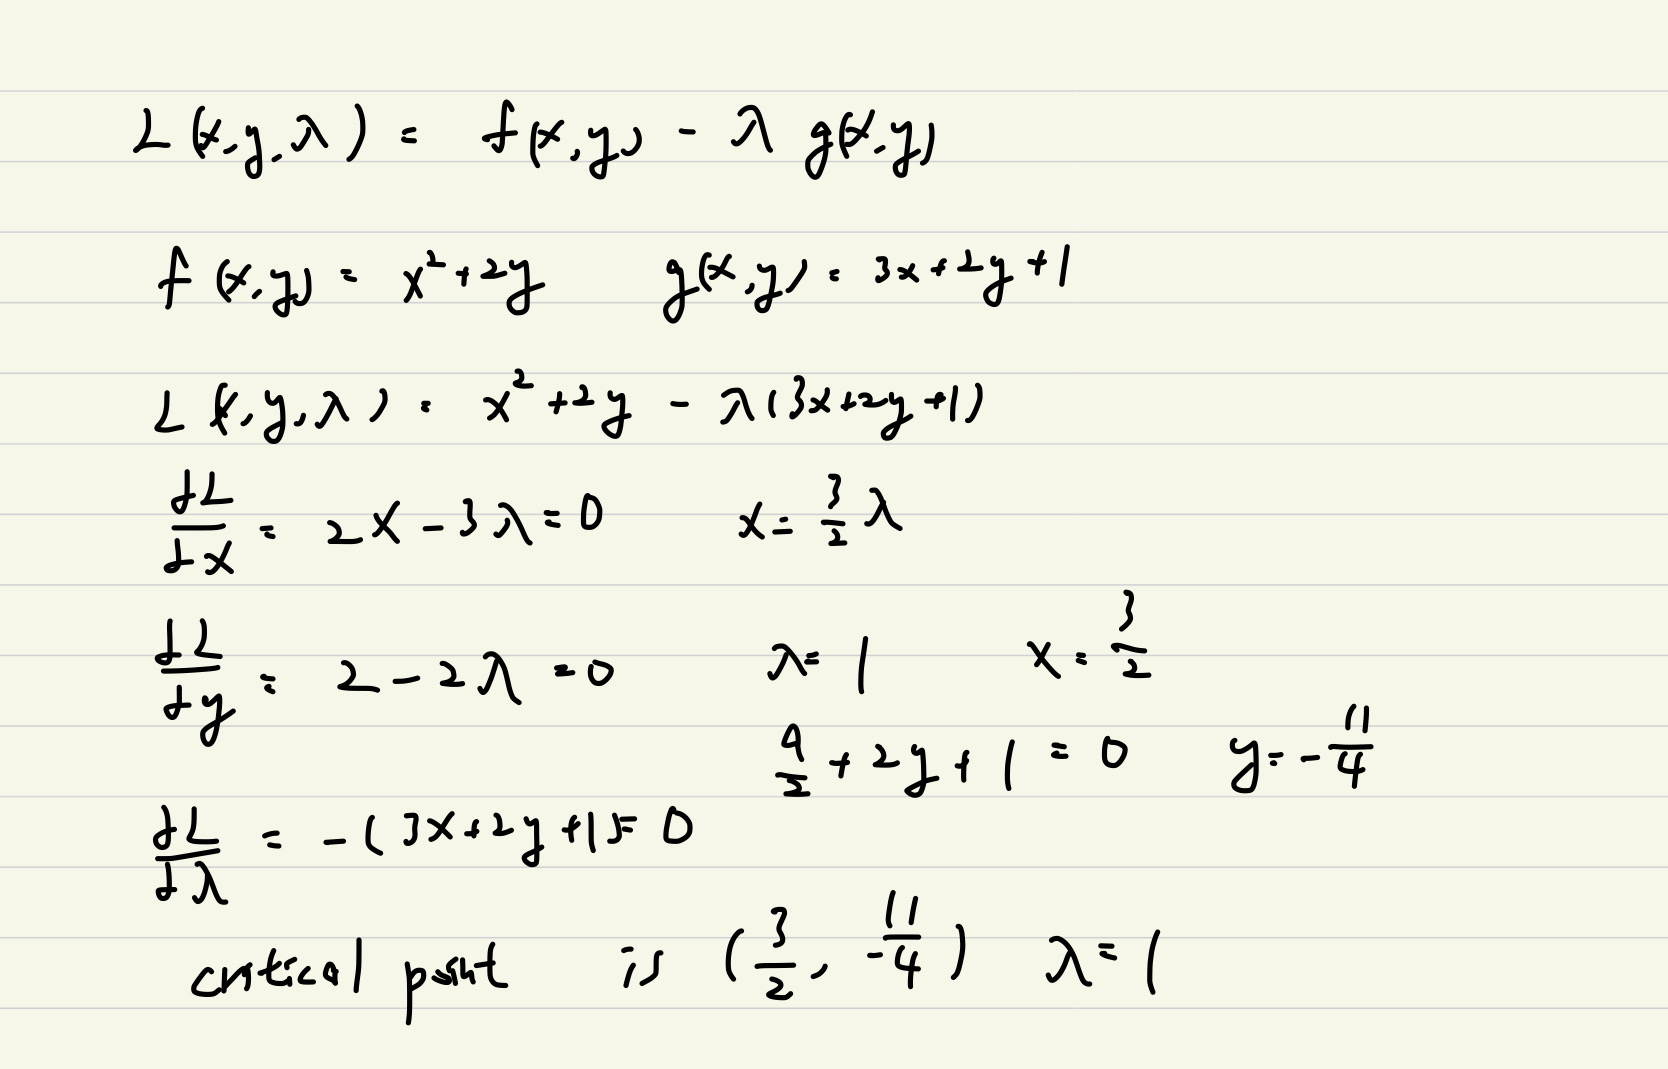 L(x,y,λ) = f(x,y) - λ g(x,y)
f(x,y) = x² + 2y   g(x,y) = 3x + 2y + 1
L(x,y,λ) = x² + 2y - λ(3x + 2y + 1)
dL/dx = 2x - 3λ = 0   x = 3/2 λ
dL/dy = 2 - 2λ = 0   λ = 1   x = 3/2
9/2 + 2y + 1 = 0   y = - 11/4
dL/dλ = -(3x + 2y + 1) = 0
critical point is (3/2, -11/4) λ = 1